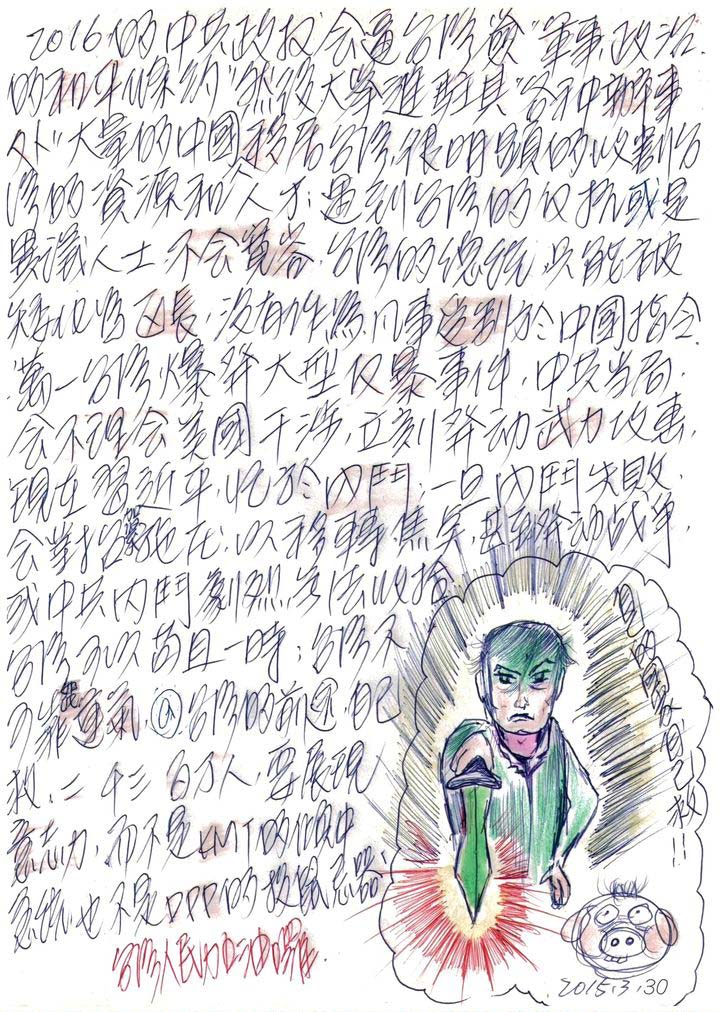 2016的中共政权会逼台湾簽"軍事政治
的和平條約"然後大举進駐其"各种辦事
处"大量的中國移居台湾,很明顯的收割台
湾的資源和人才;遇到台湾的反抗或是
異議人士不会寬容,台湾的總統只能被
矮化為区長,沒有作為,凡事告别於中國指令
萬一台湾爆發大型反暴事件,中共当局,
会不理会美國干涉,立刻発动武力攻擊,
現在習近平,忙於內鬥,一旦內鬥失敗,
会對台施压,以移轉焦点,甚至発动战争,
或中共內鬥劇烈無法收拾
台湾可以苟且一時;台湾不
可靠運氣,台湾的前途,自己
救,二千三百万人,要展現
意志力,而不是KMT的傾中
急統,也不是DPP的投鼠忌器
台湾人民加油囉
自的國家自己救!!
2015.3.30